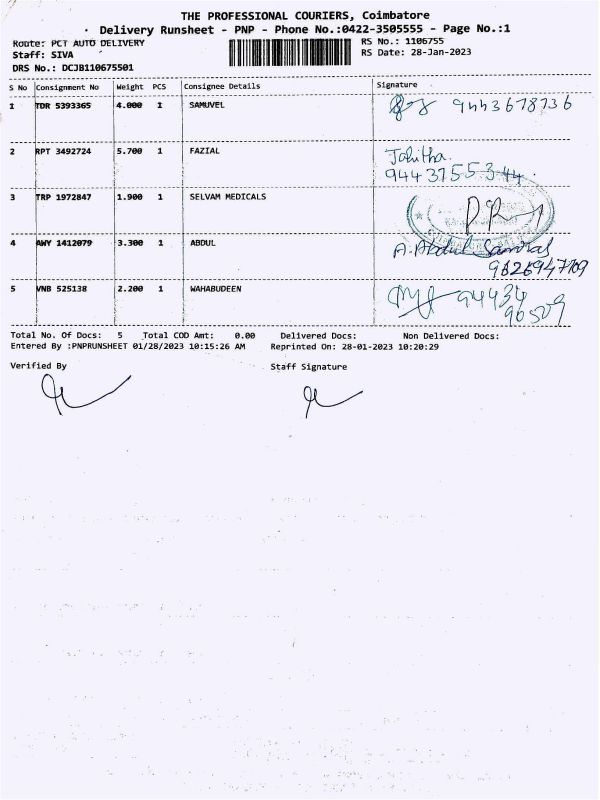 THE PROFESSIONAL COURIERS, Coimbatore
Delivery Runsheet - PNP - Phone No.:0422-3505555 - Page No.:1
Route: PCT AUTO DELIVERY
RS No.: 1106755
Staff: SIVA
RS Date: 28-Jan-2023
DRS No.: DCJB110675501
S No Consignment No Weight PCS Consignee Details Signature
1 TDR 5393365 4.000 1 SAMUVEL 9443678736
2 RPT 3492724 5.700 1 FAZIAL
9443755344
3 TRP 1972847 1.900 1 SELVAM MEDICALS
4 AWY 1412079 3.300 1 ABDUL A. Abdul
9626947709
5 VNB 525138 2.200 1 WAHABUDEEN 94434
96509
Total No. Of Docs: 5 Total COD Amt: 0.00 Delivered Docs: Non Delivered Docs:
Entered By :PNPRUNSHEET 01/28/2023 10:15:26 AM Reprinted On: 28-01-2023 10:20:29
Verified By Staff Signature